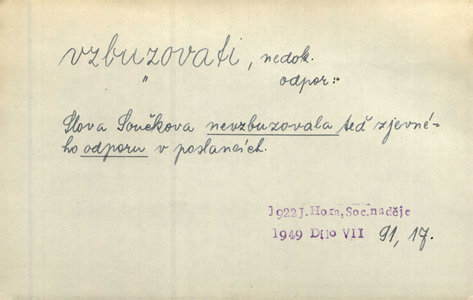 vzbuzovati, nedok.
" odpor:
Slova Součkova nevzbuzovala teď zjevné-
ho odporu v poslancích.
1922 J. Hora, Soc. naděje
1949 Dílo VII 91, 17.